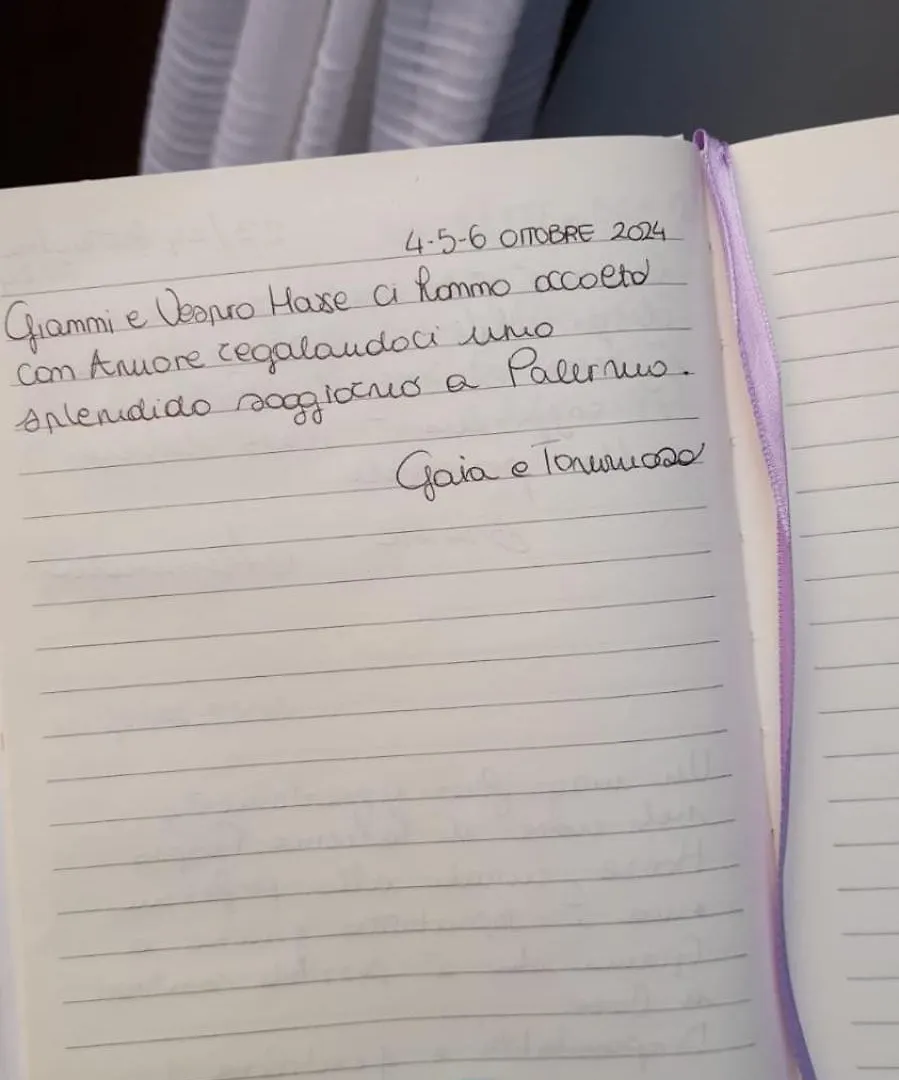 4-5-6 OTTOBRE 2024
Giammi e Vespro Hase ci hanno accolto
con Amore regalandoci uno
splendido soggiorno a Palermo.
Gaia e Tommaso